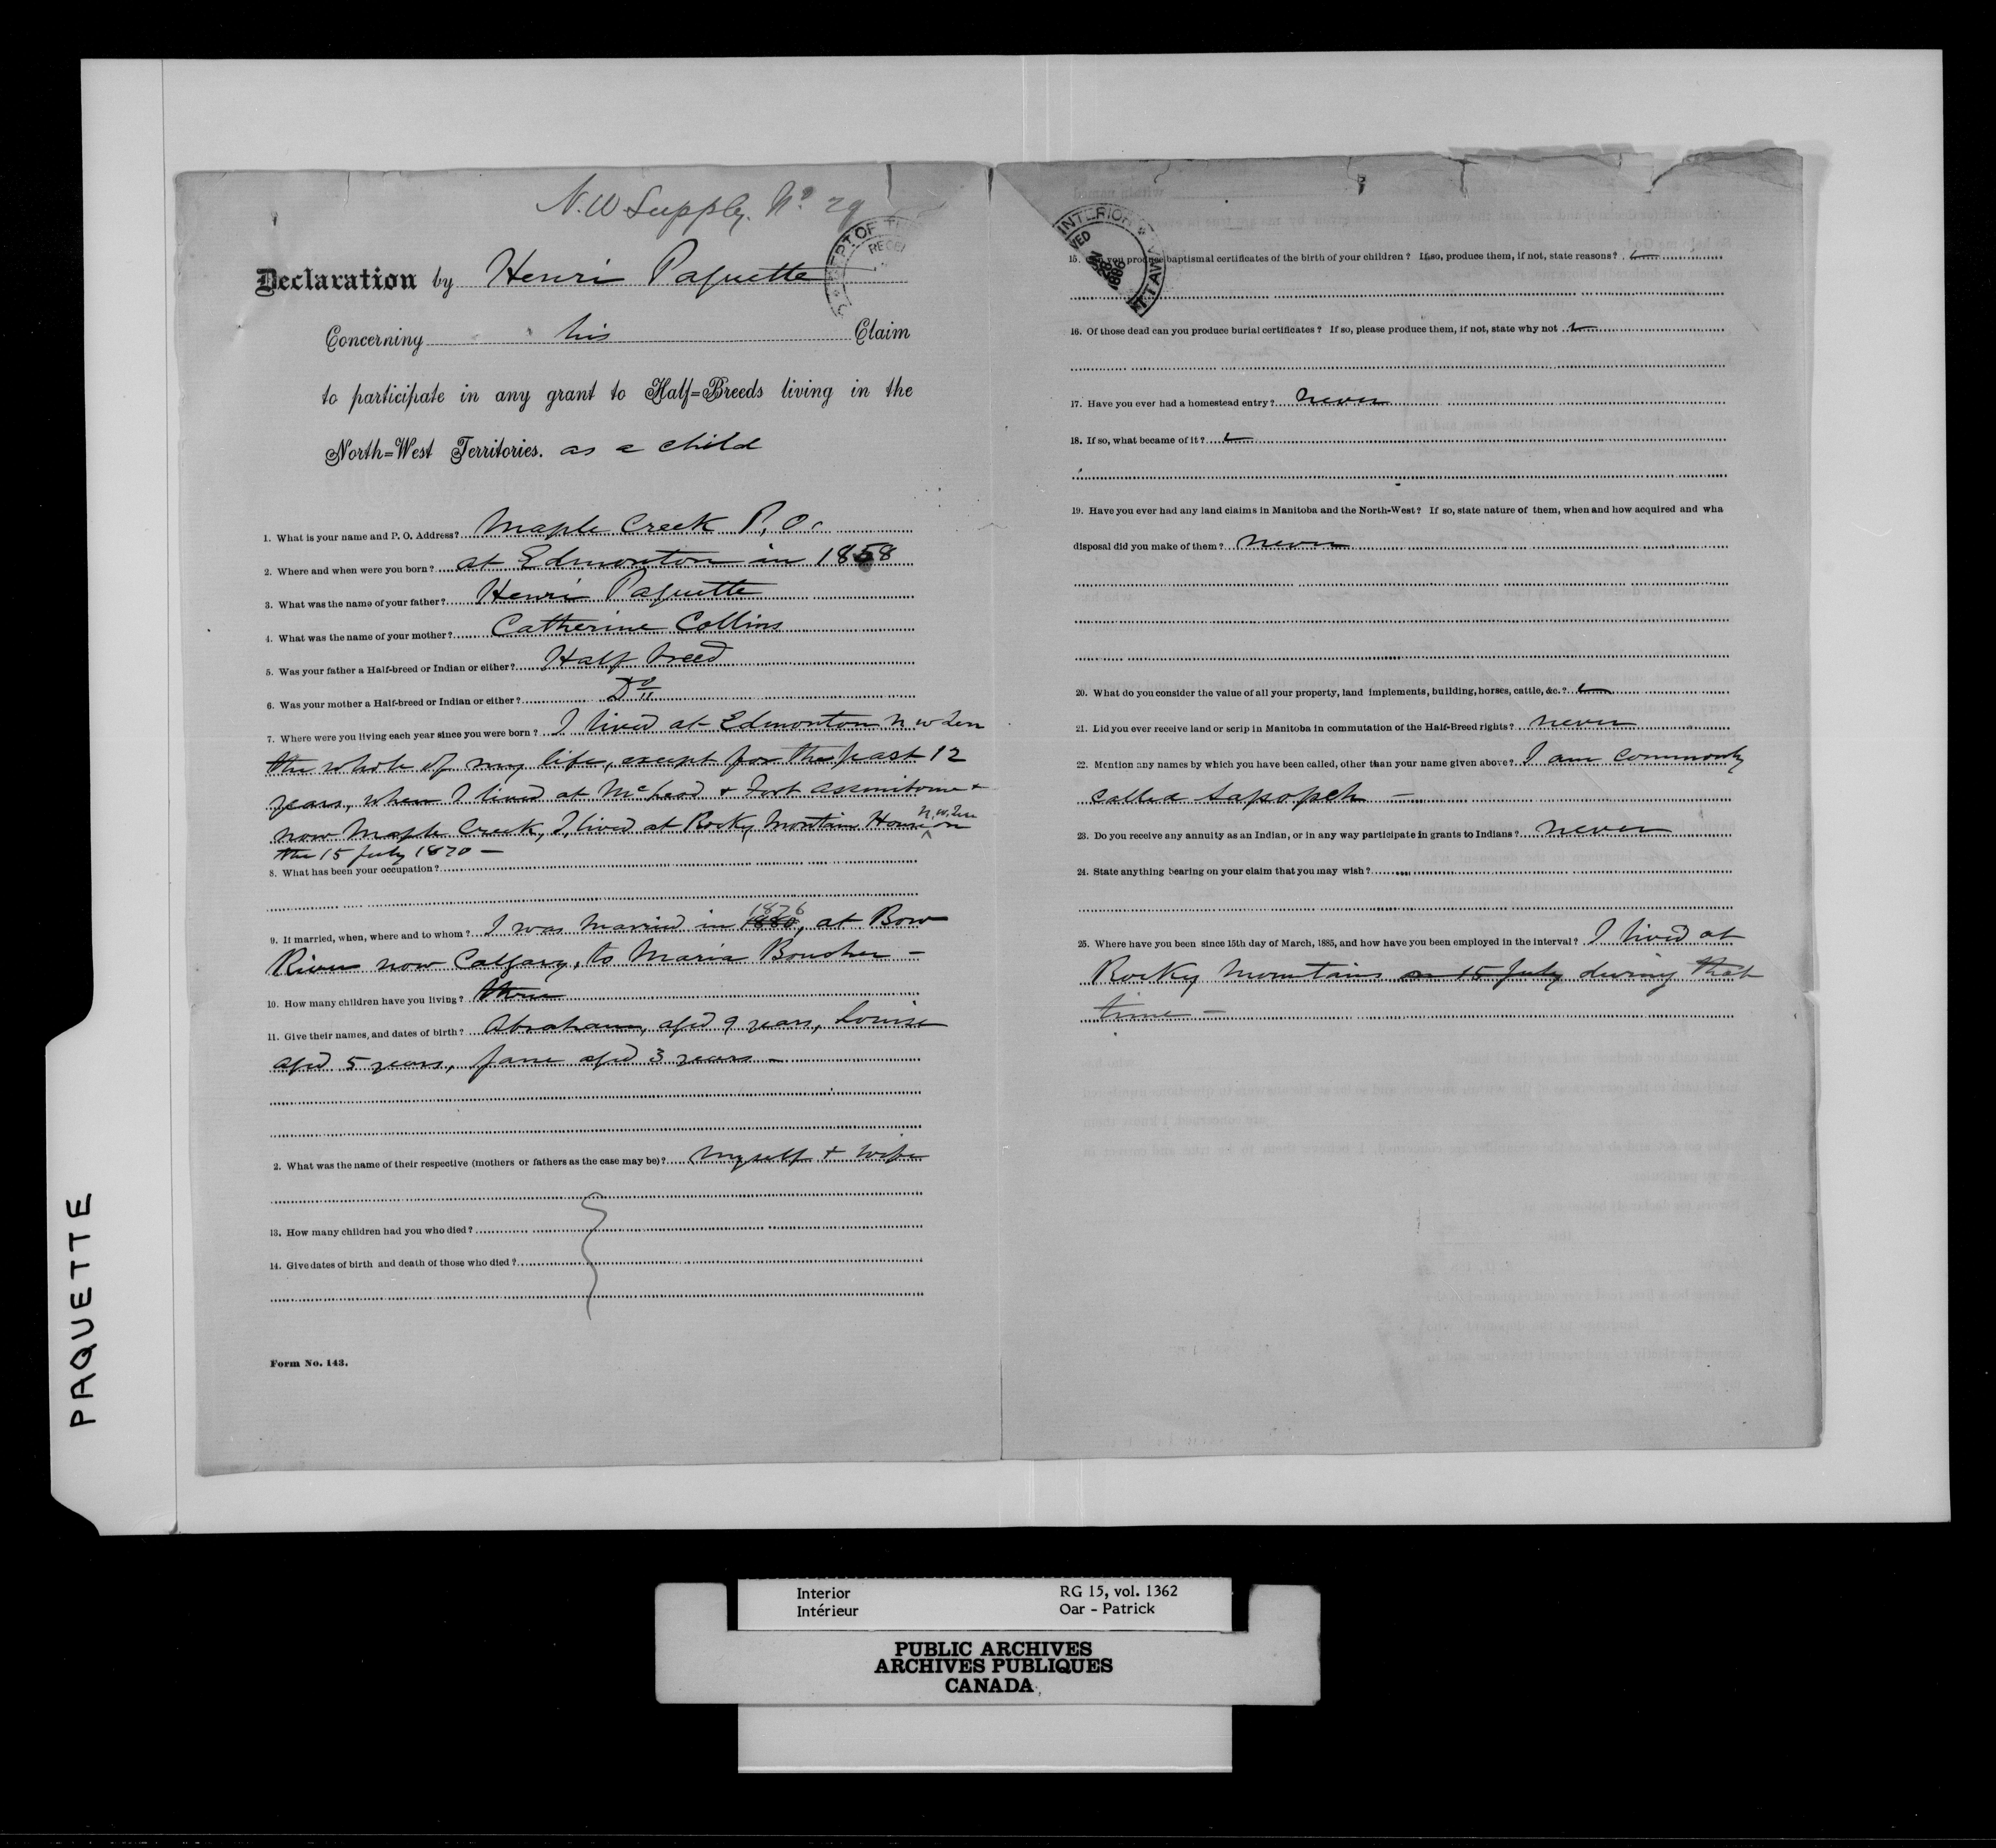 N.W Supply. No 29
DEPT OF THE
RECEI
Declaration by Henri Paquette
Concerning his Claim
to participate in any grant to Half=Breeds living in the
North=West Territories. as a child
1. What is your name and P. O. Address? Maple Creek P. O.
2. Where and when were you born? at Edmonton in 1858
3. What was the name of your father? Henri Paquette
4. What was the name of your mother? Catherine Collins
5. Was your father a Half-breed or Indian or either? Half breed
6. Was your mother a Half-breed or Indian or either? Do
7. Where were you living each year since you were born? I lived at Edmonton N W Ter
the whole of my life, except for the past 12
years, when I lived at McLeod + Fort Assiniboine +
now Maple Creek, I lived at Rocky Mountain House N.W.Ter on
the 15 July 1870 —
8. What has been your occupation?
9. If married, when, where and to whom? I was married in 1880 1876, at Bow
River now Calgary, to Maria Boucher —
10. How many children have you living? three
11. Give their names, and dates of birth? Abraham, aged 9 years, Louise
aged 5 years, Jane aged 3 years —
2. What was the name of their respective (mothers or fathers as the case may be)? Myself + wife
13. How many children had you who died?
14. Give dates of birth and death of those who died?
Form No. 143.
INTERIOR
VED
JAN 28 1886
OTTAWA
15. you produce baptismal certificates of the birth of your children? If so, produce them, if not, state reasons?
16. Of those dead can you produce burial certificates? If so, please produce them, if not, state why not
17. Have you ever had a homestead entry? never
18. If so, what became of it?
19. Have you ever had any land claims in Manitoba and the North-West? If so, state nature of them, when and how acquired and wha
disposal did you make of them? never
20. What do you consider the value of all your property, land implements, building, horses, cattle, &c.?
21. Did you ever receive land or scrip in Manitoba in commutation of the Half-Breed rights? never
22. Mention any names by which you have been called, other than your name given above? I am commonly
called Sapopch —
23. Do you receive any annuity as an Indian, or in any way participate in grants to Indians? never
24. State anything bearing on your claim that you may wish?
25. Where have you been since 15th day of March, 1885, and how have you been employed in the interval? I lived at
Rocky Mountains on 15 July during that
time —
PAQUETTE
Interior
Intérieur
RG 15, vol. 1362
Oar - Patrick
PUBLIC ARCHIVES
ARCHIVES PUBLIQUES
CANADA